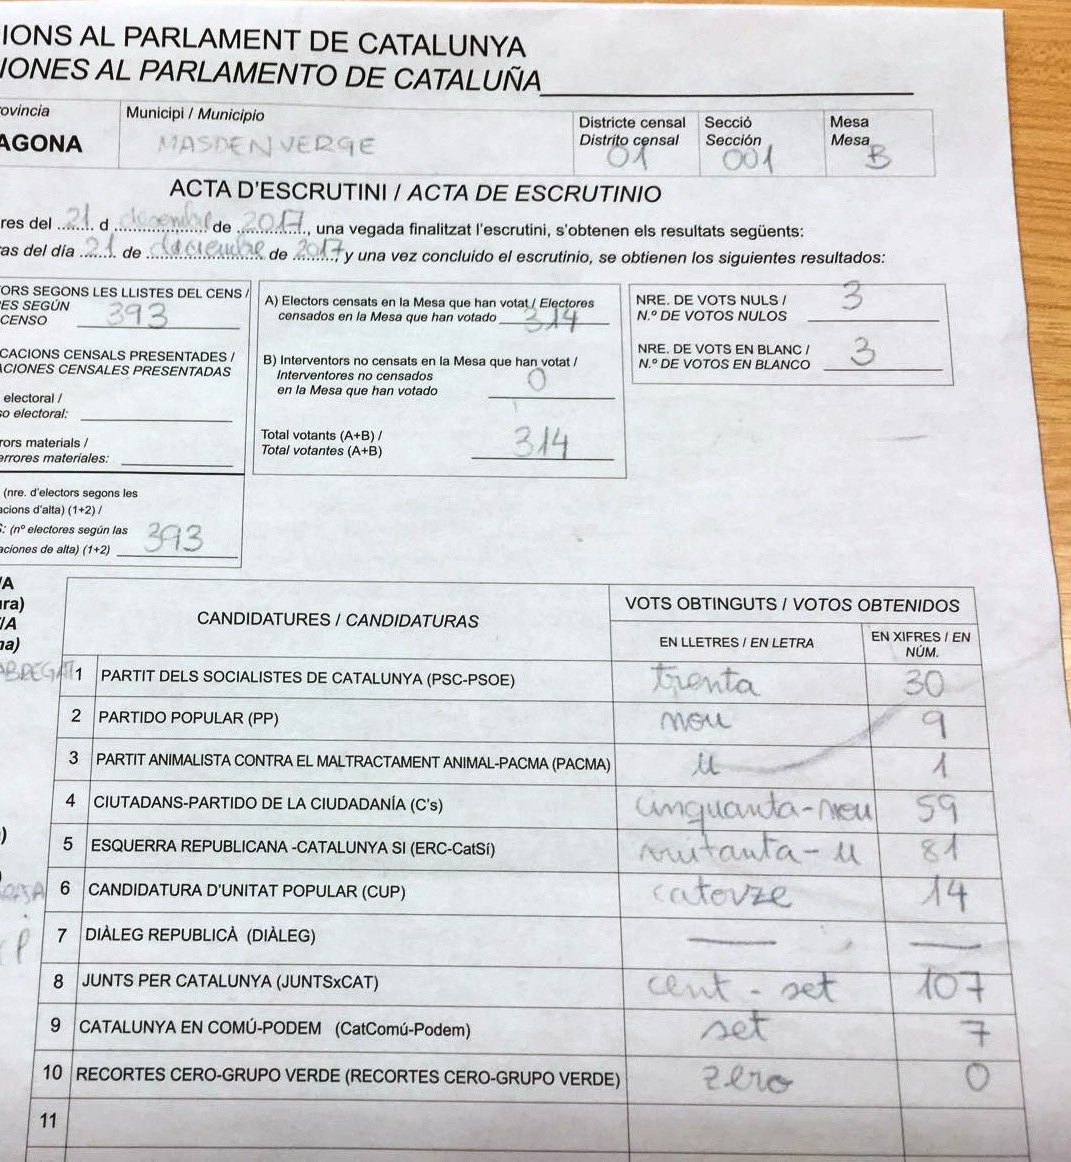 IONS AL PARLAMENT DE CATALUNYA
IONES AL PARLAMENTO DE CATALUÑA
ovincia
AGONA
Municipi / Municipio
MASDENVERGE
Districte censal
Distrito censal
01
Secció
Sección
001
Mesa
Mesa
B
ACTA D'ESCRUTINI / ACTA DE ESCRUTINIO
res del 21 d desembre de 2017, una vegada finalitzat l'escrutini, s'obtenen els resultats següents:
as del día 21 de diciembre de 2017, y una vez concluido el escrutinio, se obtienen los siguientes resultados:
ORS SEGONS LES LLISTES DEL CENS /
ES SEGÚN
CENSO 393
CACIONS CENSALS PRESENTADES /
ACIONES CENSALES PRESENTADAS
electoral /
so electoral:
rors materials /
errores materiales:
(nre. d'electors segons les
acions d'alta) (1+2) /
S: (nº electores según las
aciones de alta) (1+2) 393
A) Electors censats en la Mesa que han votat / Electores
censados en la Mesa que han votado 314
B) Interventors no censats en la Mesa que han votat /
Interventores no censados
en la Mesa que han votado 0
Total votants (A+B) /
Total votantes (A+B) 314
NRE. DE VOTS NULS /
N.º DE VOTOS NULOS 3
NRE. DE VOTS EN BLANC /
N.º DE VOTOS EN BLANCO 3
/A
ura)
/A
na)
CANDIDATURES / CANDIDATURAS
VOTS OBTINGUTS / VOTOS OBTENIDOS
EN LLETRES / EN LETRA
EN XIFRES / EN
NÚM.
ABREGAT
1 PARTIT DELS SOCIALISTES DE CATALUNYA (PSC-PSOE) trenta 30
2 PARTIDO POPULAR (PP) nou 9
3 PARTIT ANIMALISTA CONTRA EL MALTRACTAMENT ANIMAL-PACMA (PACMA) u 1
4 CIUTADANS-PARTIDO DE LA CIUDADANÍA (C's) cinquanta-nou 59
5 ESQUERRA REPUBLICANA -CATALUNYA SI (ERC-CatSí) vuitanta-u 81
6 CANDIDATURA D'UNITAT POPULAR (CUP) catorze 14
7 DIÀLEG REPUBLICÀ (DIÀLEG) — —
8 JUNTS PER CATALUNYA (JUNTSxCAT) cent-set 107
9 CATALUNYA EN COMÚ-PODEM (CatComú-Podem) set 7
10 RECORTES CERO-GRUPO VERDE (RECORTES CERO-GRUPO VERDE) zero 0
11